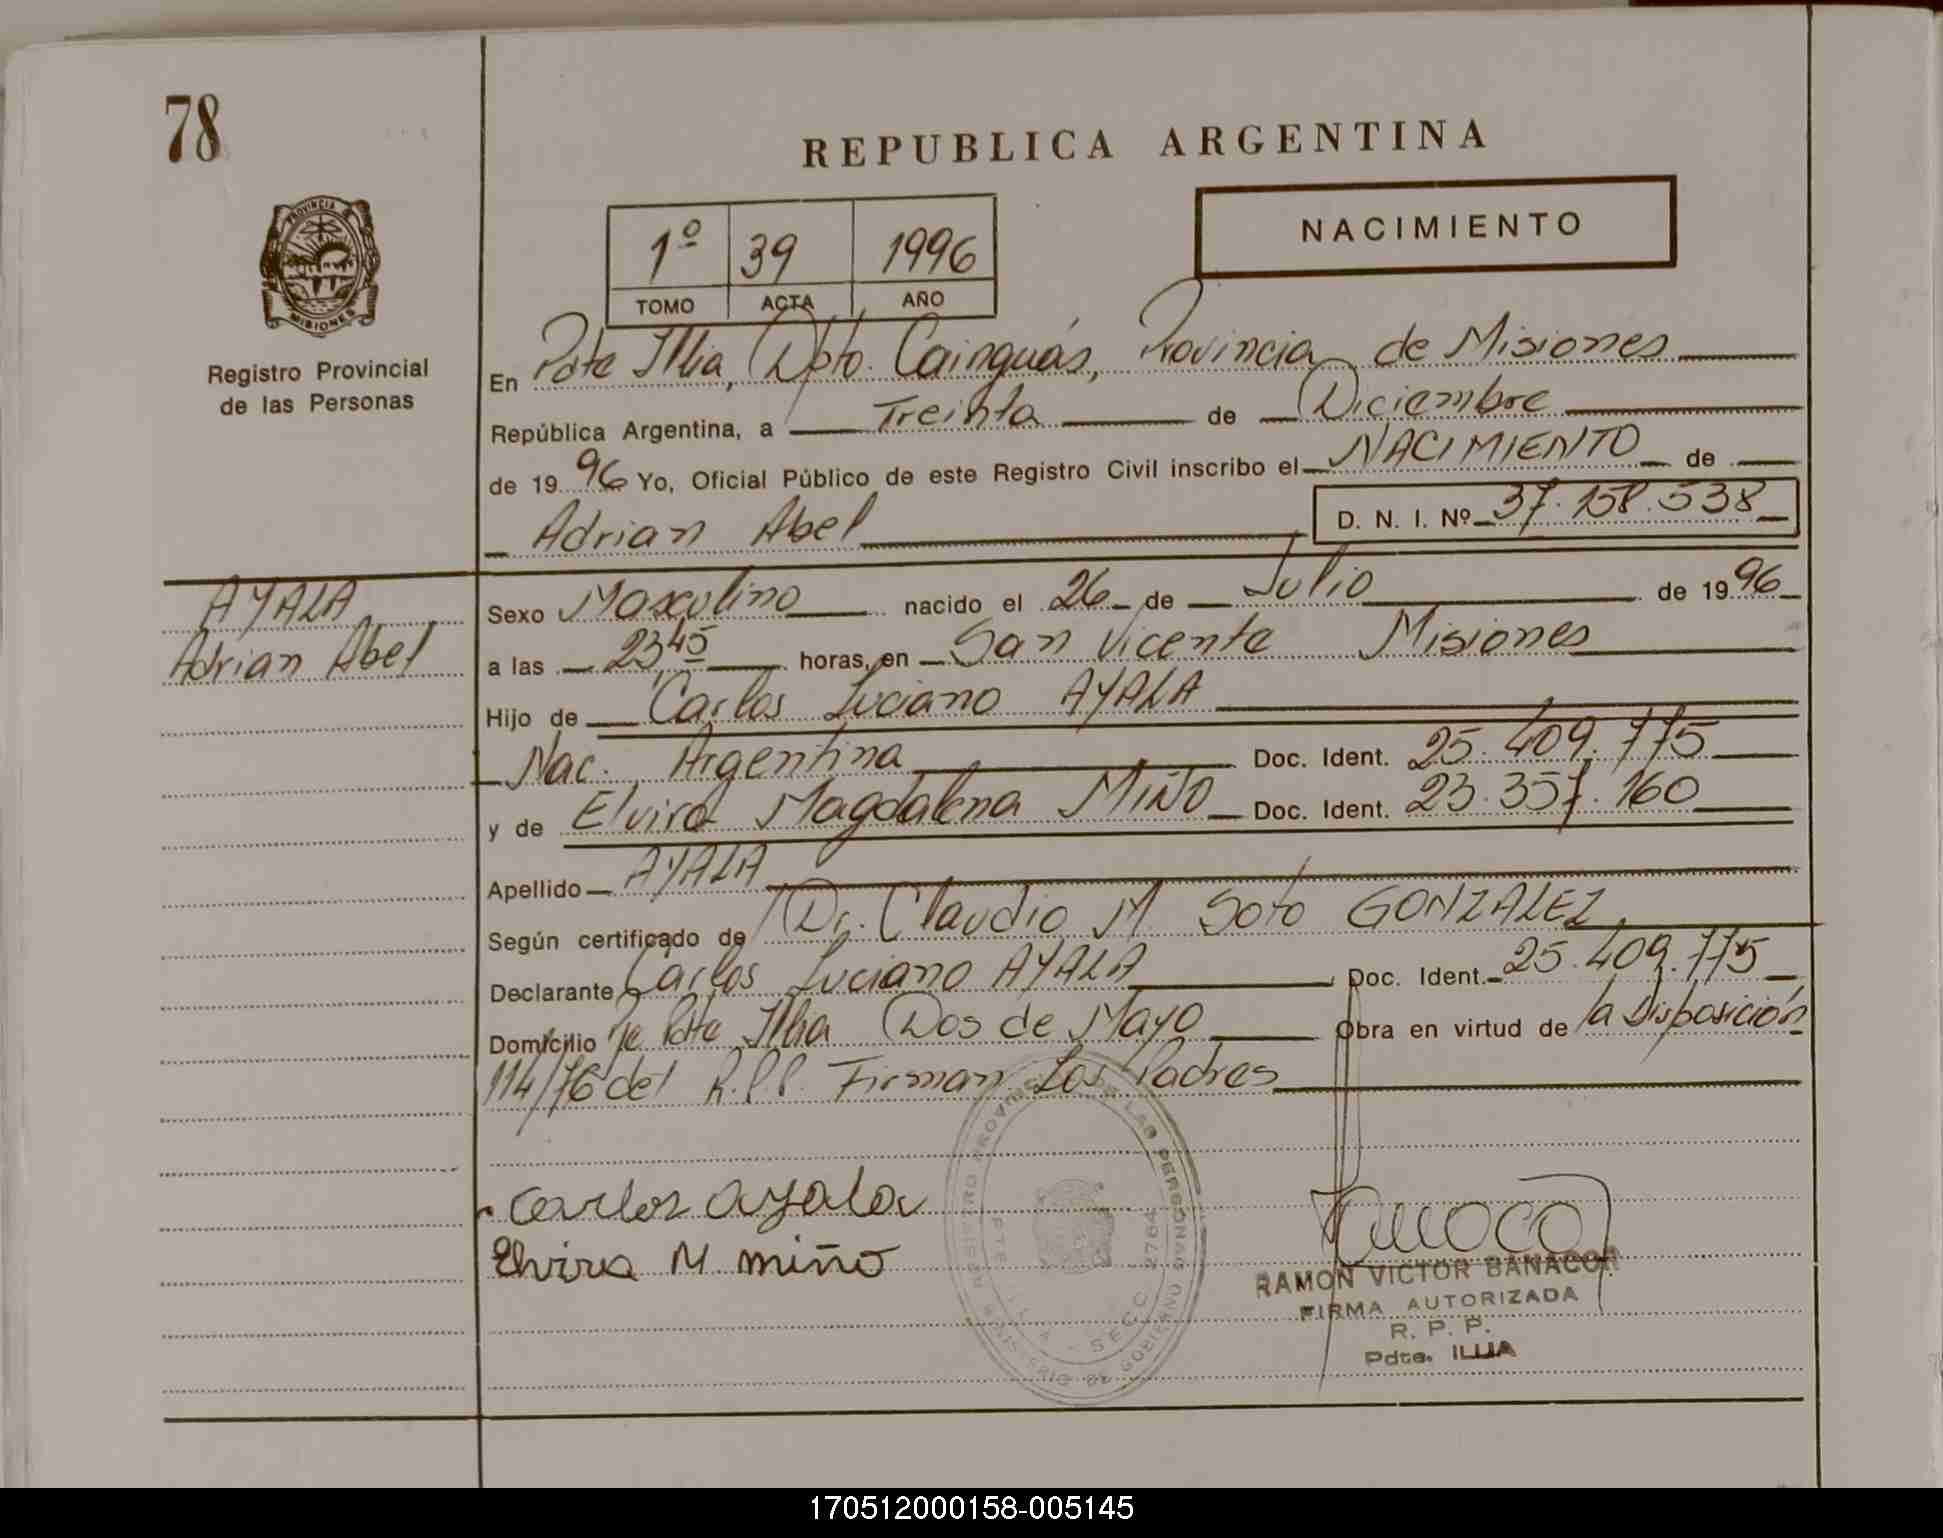 78
REPUBLICA ARGENTINA
PROVINCIA DE
MISIONES
Registro Provincial
de las Personas
1º 39 1996
TOMO ACTA AÑO
NACIMIENTO
En Pdte Illia, Dpto. Cainguás, Provincia de Misiones
República Argentina, a Treinta de Diciembre
de 1996 Yo, Oficial Público de este Registro Civil inscribo el NACIMIENTO de
Adrian Abel D. N. I. Nº 37.158.538
AYALA
Adrian Abel
Sexo Masculino nacido el 26 de Julio de 1996
a las 23,45 horas, en San Vicente Misiones
Hijo de Carlos Luciano AYALA
Nac. Argentina Doc. Ident. 25.409.775
y de Elvira Magdalena MIÑO Doc. Ident. 23.357.160
Apellido AYALA
Según certificado de Dr. Claudio M Soto GONZALEZ
Declarante Carlos Luciano AYALA Doc. Ident. 25.409.775
Domicilio Pje Pdte Illia Dos de Mayo Obra en virtud de la Disposición
114/76 del R.P.P. Firman Los Padres
Carlos Ayala
Elvira M miño
REGISTRO PROVINCIAL DE LAS PERSONAS
MINISTERIO DE GOBIERNO
PTE. ILLIA - SECC. 2764
RAMON VICTOR BANACOR
FIRMA AUTORIZADA
R. P. P.
Pdte. ILLIA
170512000158-005145